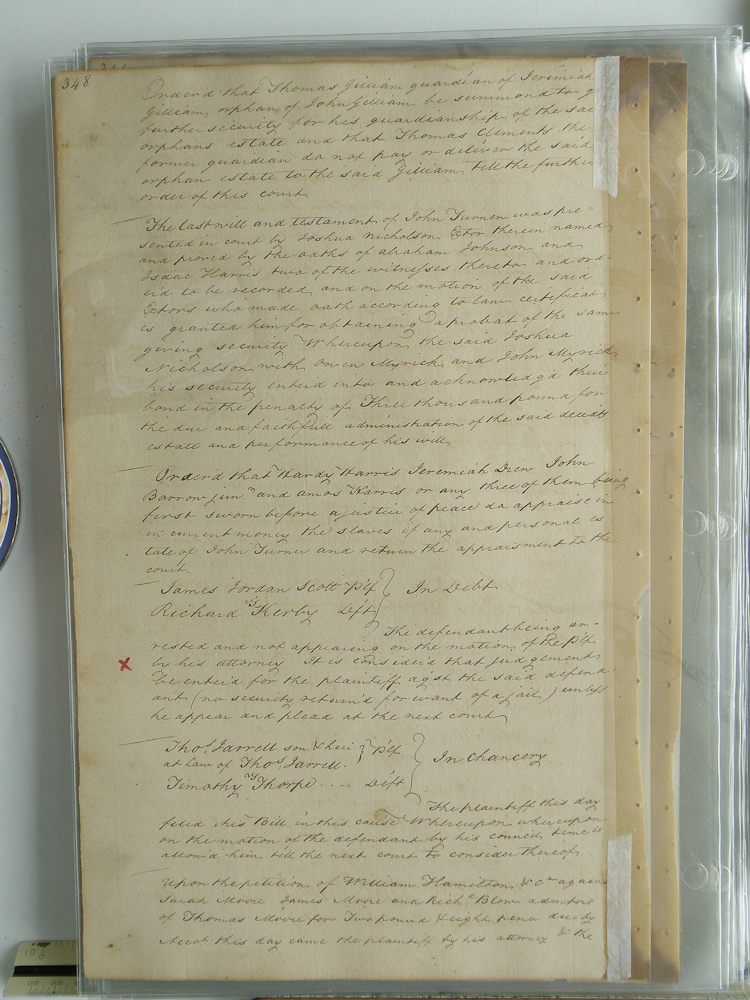 348
Order'd that Thomas Gilliam guardian of Jeremiah
Gilliam orphan of John Gilliam be summond to g
further security for his guardianship of the sai
orphans estate and that Thomas Clements the
former guardian do not pay or deliver the said
orphan estate to the said Gilliam till the further
order of this court
The last will and testament of John Turner was pre-
sented in court by Joshua Nicholson Exor therein named
and proved by the oaths of abraham Johnson and
Isaac Harris two of the witnesses thereto and ord
er'd to be recorded and on the motion of the said
Extors who made oath according to law certificat
is granted him for obtaining a probat of the same
giving security Whereupon the said Joshua
Nicholson with Owen Myrick and John Myrick
his security enter'd into and acknowledg'd their
bond in the penalty of Three thousand pound for
the due and faithfull administration of the said deceds
estate and performance of his will
Order'd that Hardy Harris Jeremiah Drew John
Barrow junr and amos Harris or any three of them being
first sworn before a justice of peace do appraise in
in current money the slaves if any and personal es
tate of John Turner and return the appraisment to the
court.
James Jordan Scott Plf } In Debt
vs
Richard Kerby Deft
The defendant being ar-
rested and not appearing on the motion of the Plf
by his attorney It is consider'd that judgement
be enter'd for the plaintiff agst the said defend
ant (no security return'd for want of a jail) unless
he appear and plead at the next court
Thos. Jarrell son & heir } Plf
at law of Thos. Jarrell. } In Chancery
vs
Timothy Thorpe .... Deft
The plaintiff this day
filed his Bill in this cause Whereupon whereupon
on the motion of the defendant by his council time is
allow'd him till the next court to consider thereof
Upon the petition of William Hamilton & Co. again
Sarah Moore James Moore and Richd. Blow admtors
of Thomas Moore for Two pound & eight pence due by
Accot this day came the plaintiff by his attorney & the